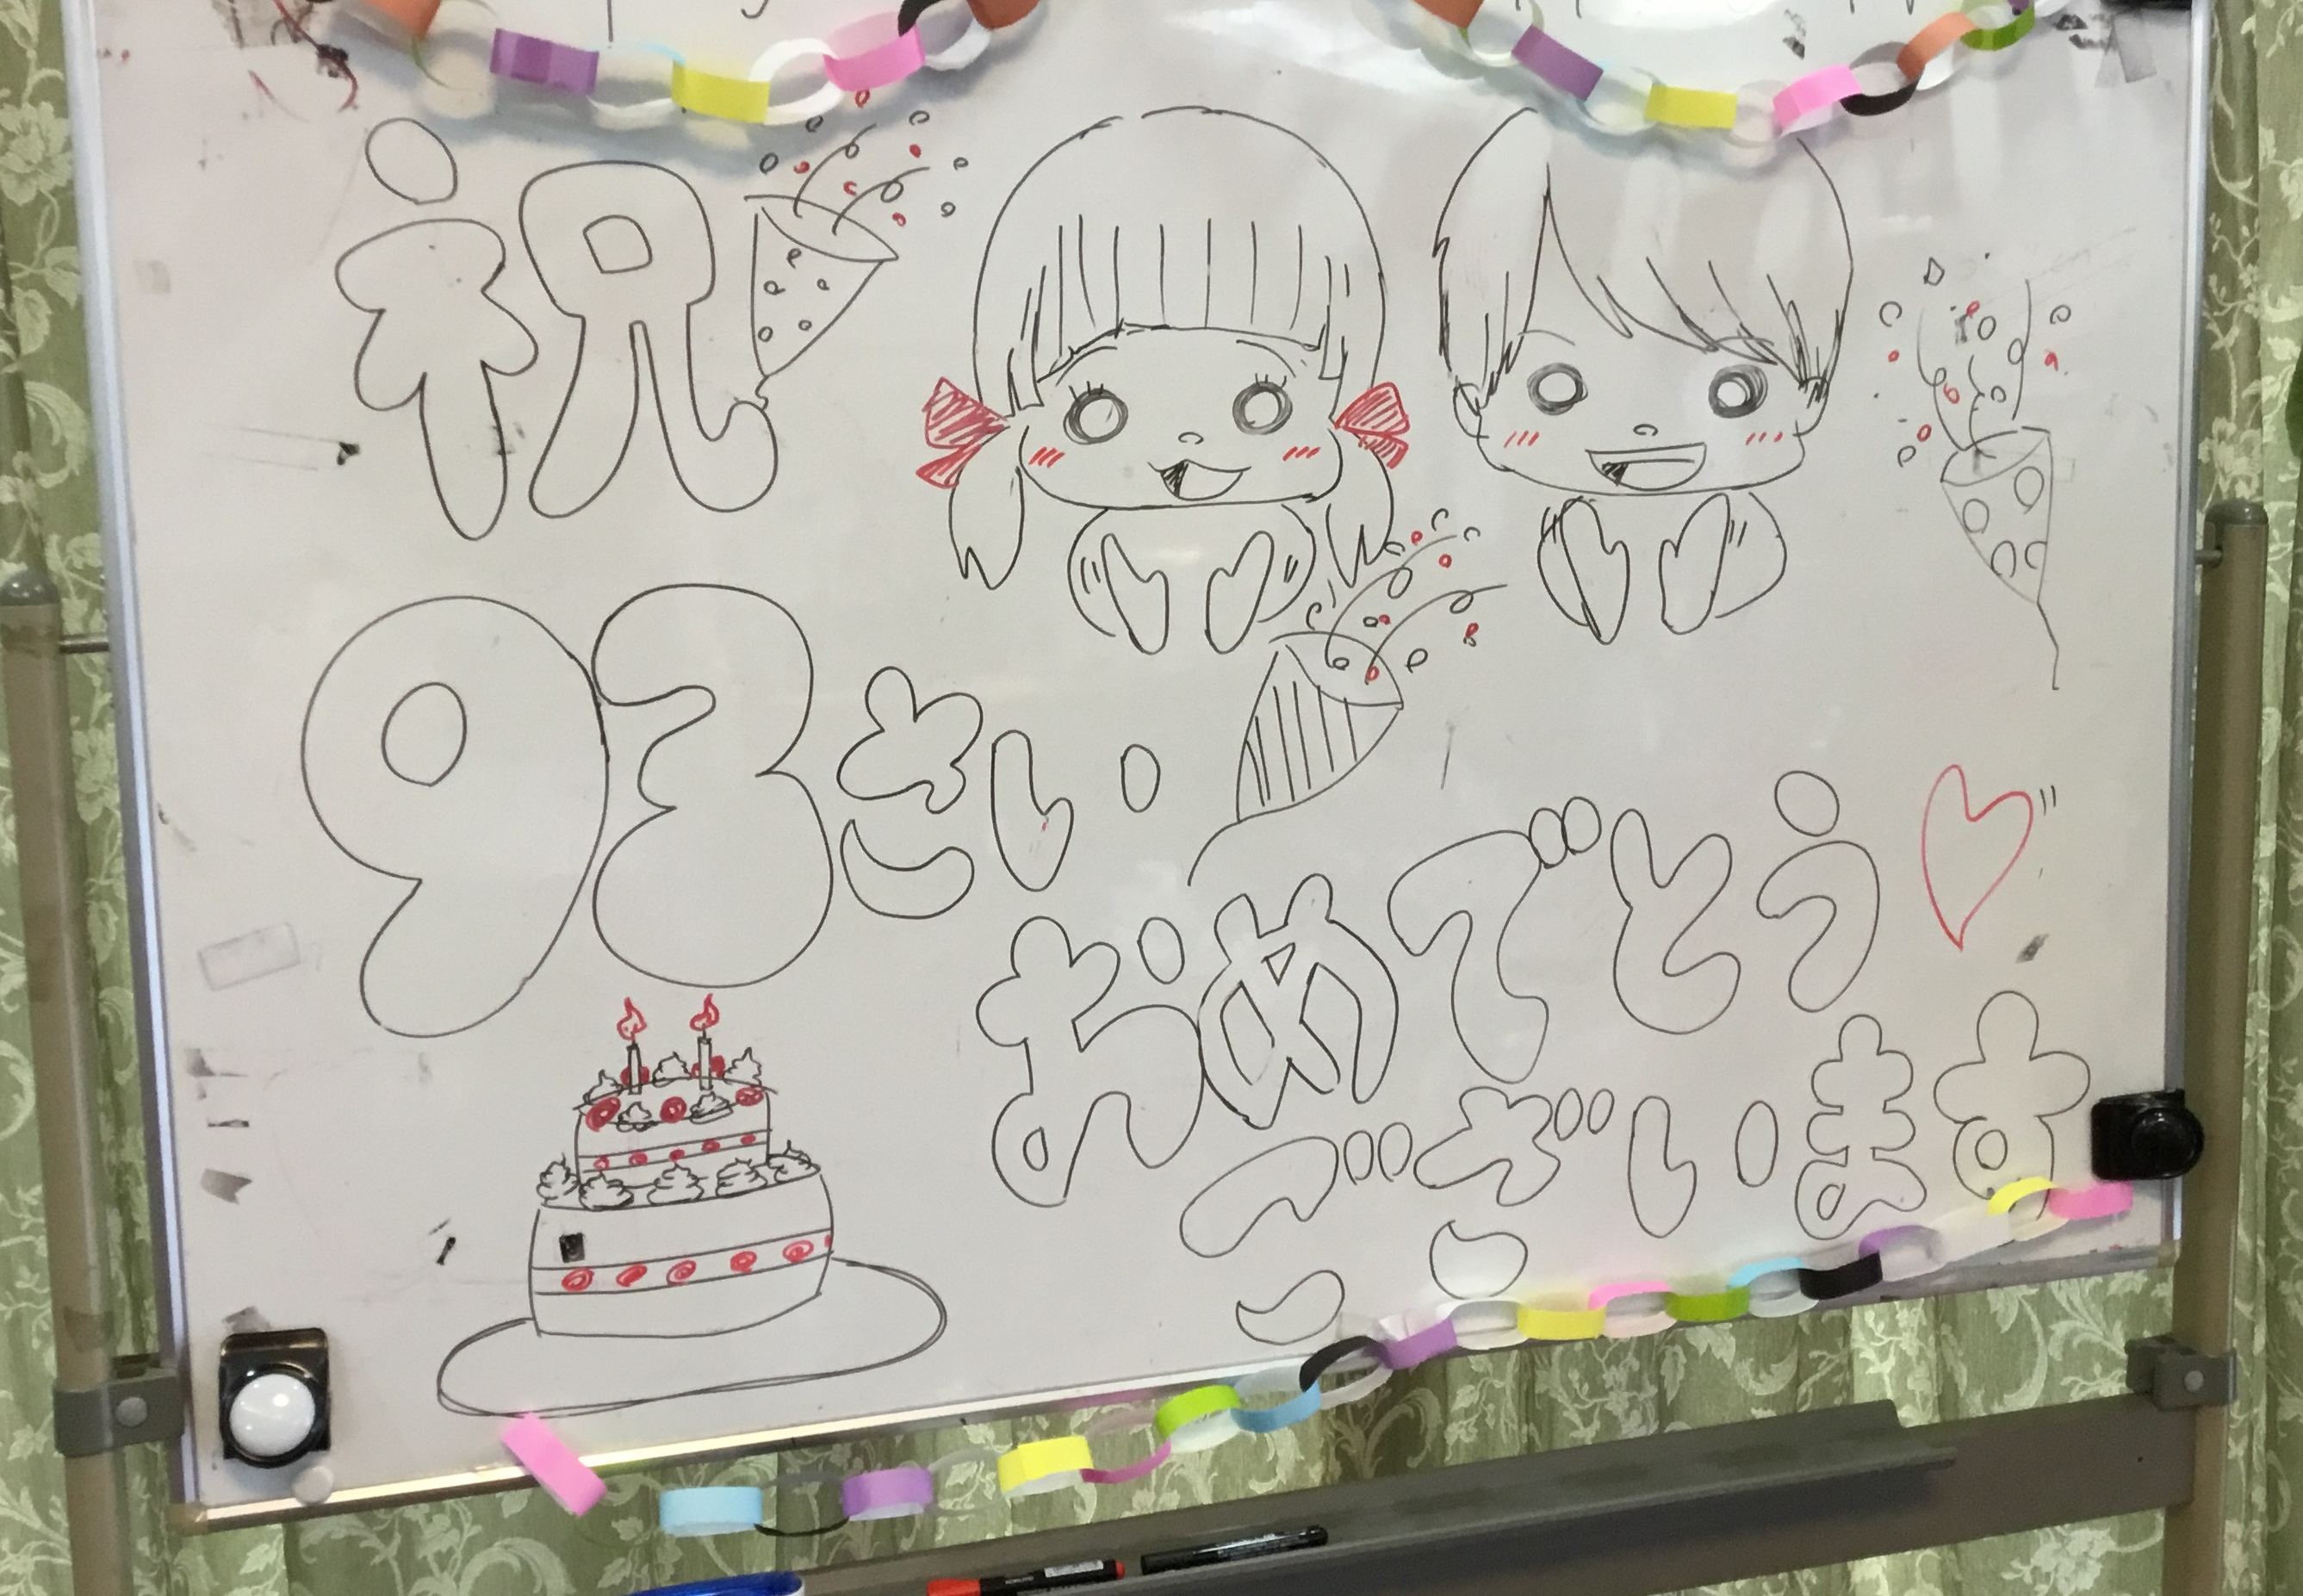 祝
93さい
おめでとう♡
ございます